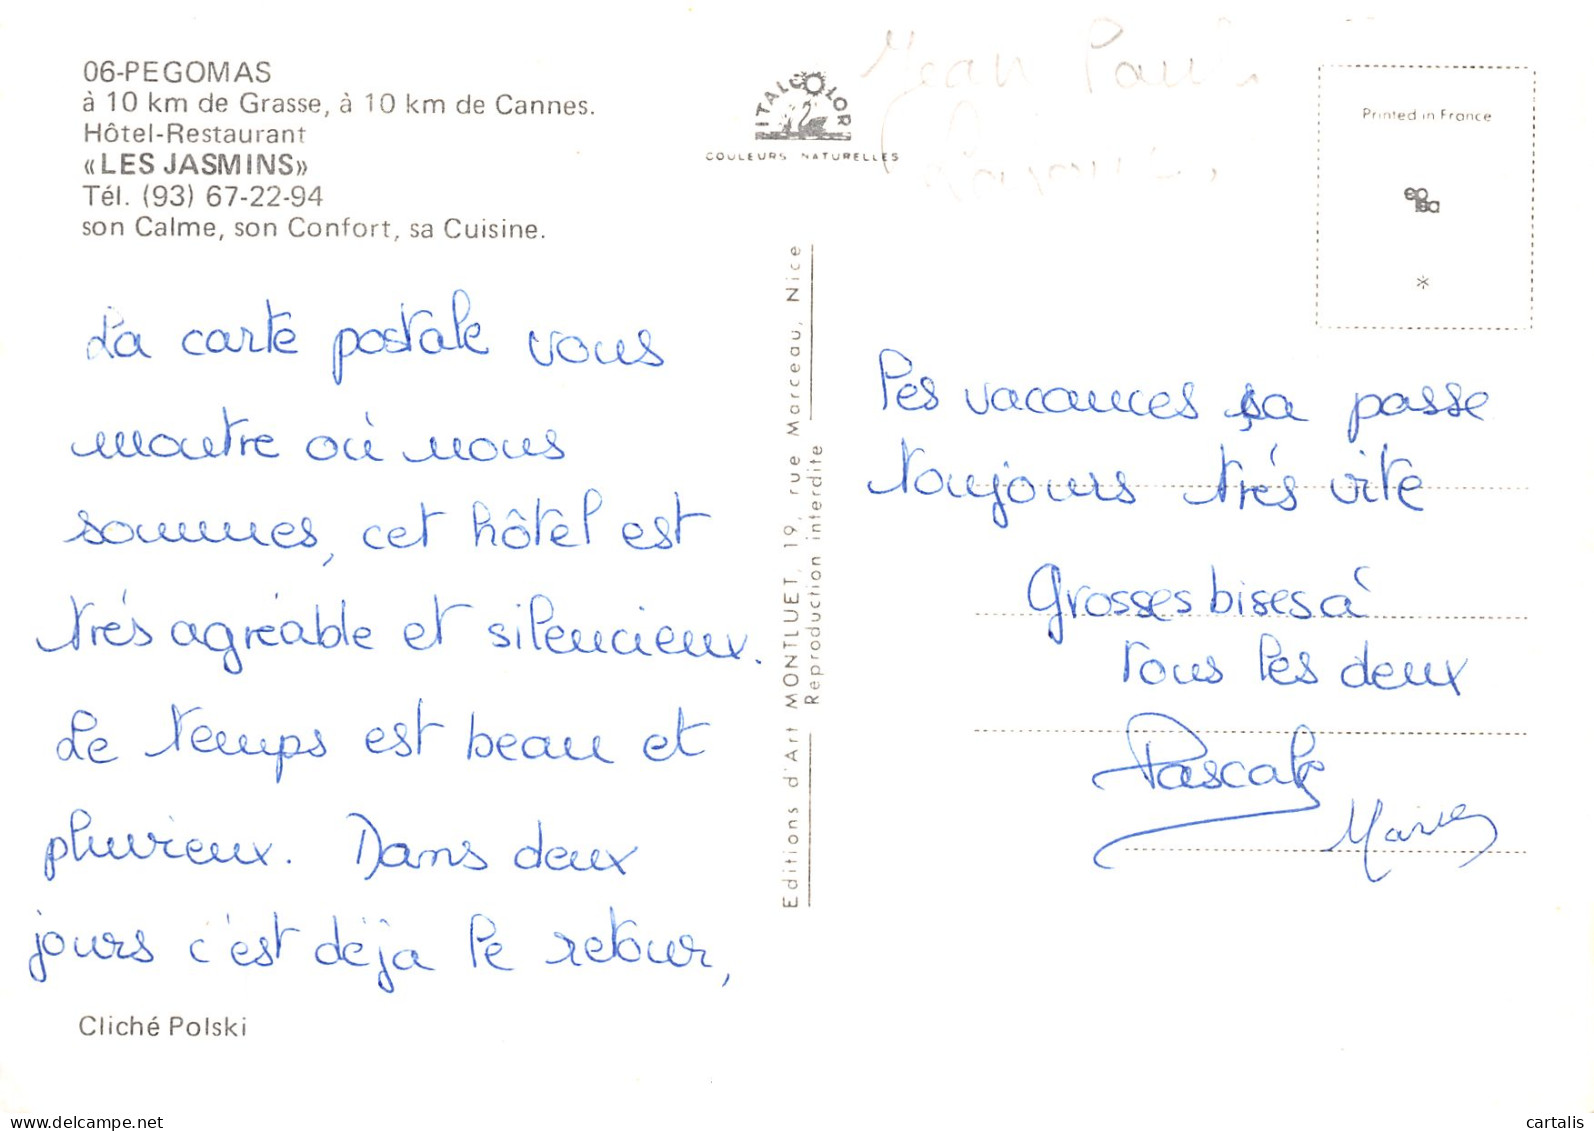 06-PEGOMAS
à 10 km de Grasse, à 10 km de Cannes.
Hôtel-Restaurant
«LES JASMINS»
Tél. (93) 67-22-94
son Calme, son Confort, sa Cuisine.
La carte postale vous
montre où nous
sommes, cet hôtel est
trés agréable et silencieux.
Le temps est beau et
pluvieux. Dans deux
jours c'est déja le retour,
Cliché Polski
ITALCOLOR
COULEURS NATURELLES
Editions d'Art MONTLUET, 19, rue Marceau, Nice
Reproduction interdite
Jean Paul
Printed in France
*
les vacances sa passe
toujours trés vite
Grosses bises à
tous les deux
Pascale
cartalis
www.delcampe.net